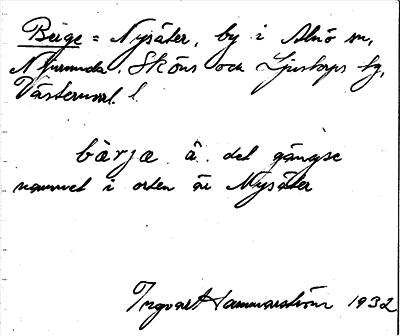 Berge = Nysäter, by i Alnö sn,
Njurunda, Sköns och Ljustorps tg,
Västernorrl. l.
bärja ä. det gängse
namnet i orten är Nysäter
Ingvart Hammarström 1932